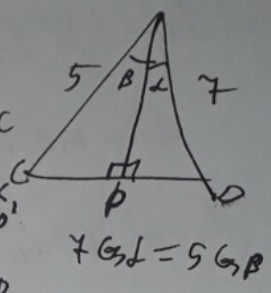 5 β α 7
C
P D
7 Cos α = 5 Cos β